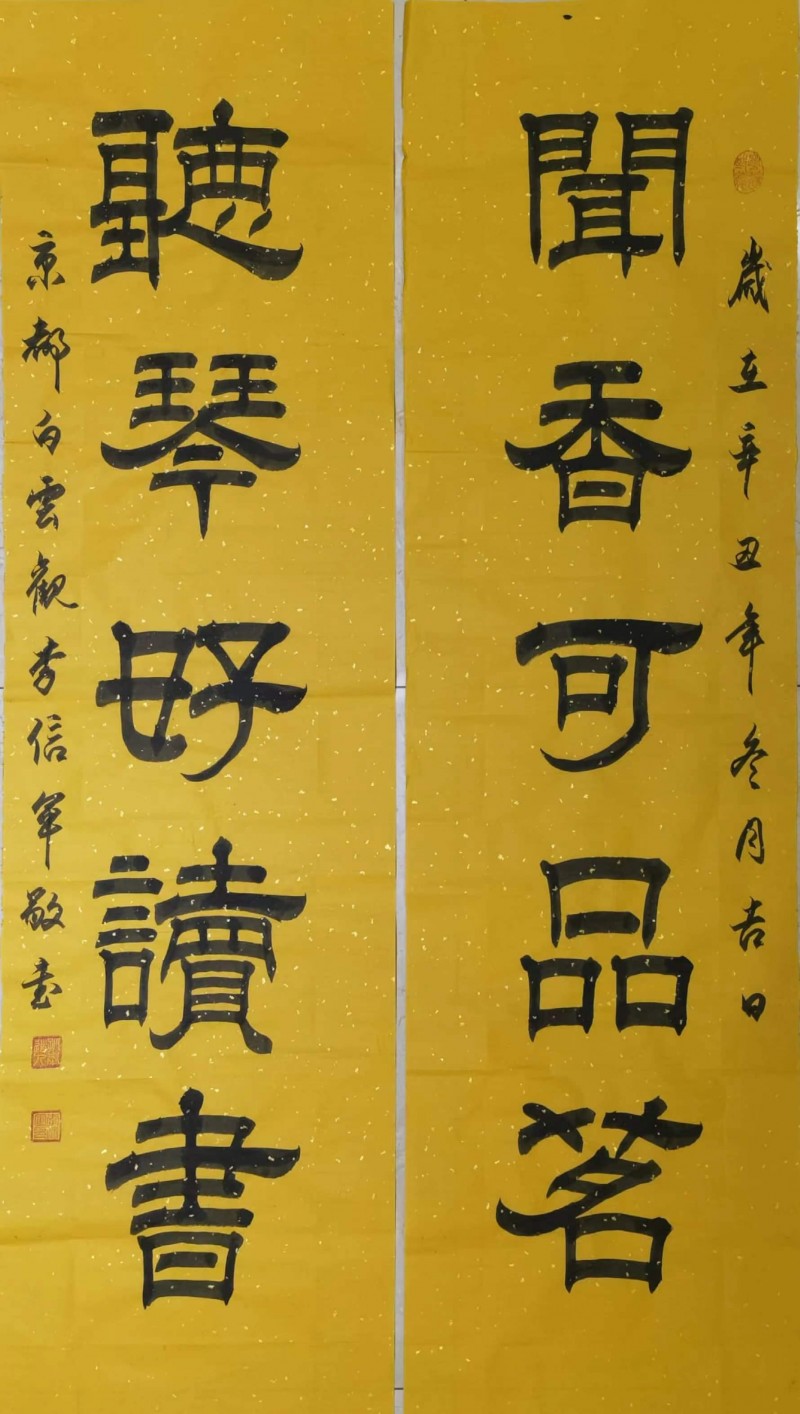 歲在辛丑年冬月吉日
聞香可品茗
聽琴好讀書
京都白雲觀李信軍敬書